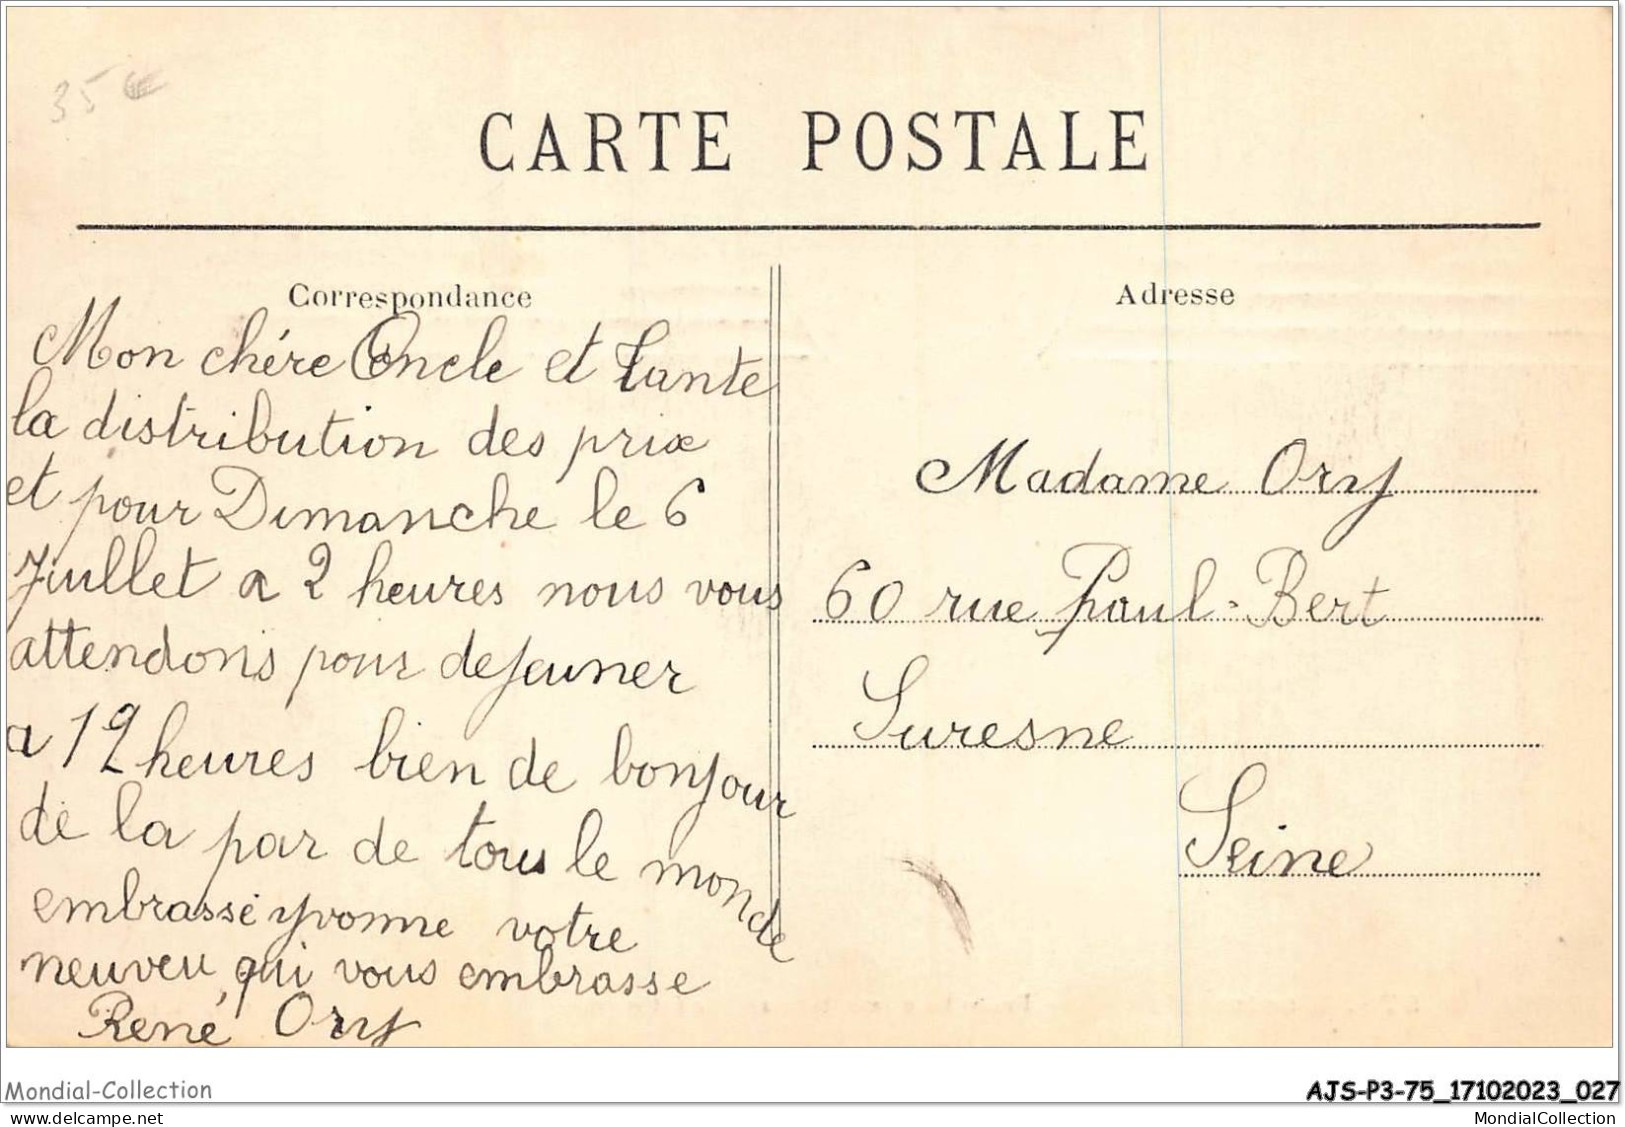 35 €
CARTE POSTALE
Correspondance
Mon chére Oncle et tante
la distribution des prix
et pour Dimanche le 6
Juillet a 2 heures nous vous
attendons pour dejeuner
a 12 heures bien de bonjour
de la par de tous le monde
embrasse yvonne votre
neuveu qui vous embrasse
René Ory
Adresse
Madame Ory
60 rue Paul-Bert
Suresne
Seine
Mondial-Collection
AJS-P3-75_17102023_027
© Delcampe.net, tous droits réservés
MondialCollection